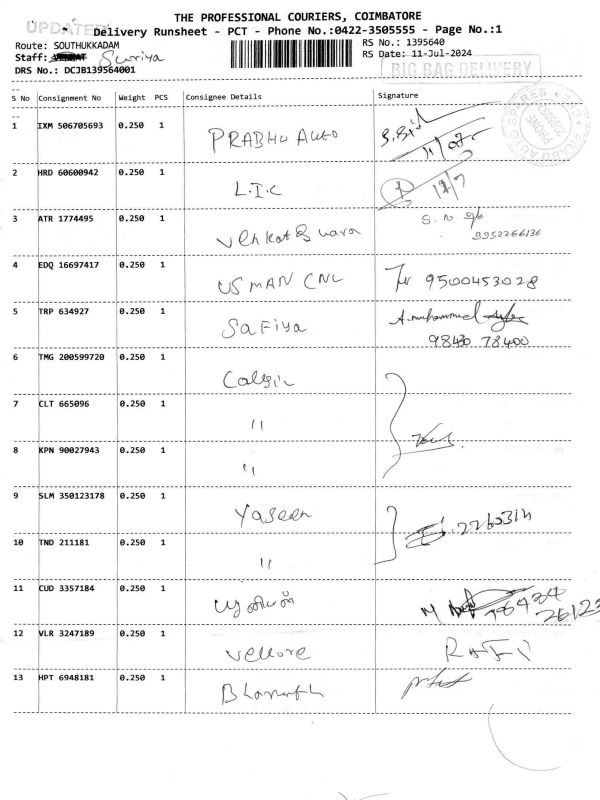 THE PROFESSIONAL COURIERS, COIMBATORE
UPDATED
Delivery Runsheet - PCT - Phone No.:0422-3505555 - Page No.:1
Route: SOUTHUKKADAM
RS No.: 1395640
Staff: Suriya
RS Date: 11-Jul-2024
DRS No.: DCJB139564001
BIG BAG DELIVERY
S No Consignment No Weight PCS Consignee Details Signature
1 IXM 506705693 0.250 1 PRABHU AUTO
2 HRD 60600942 0.250 1 L.I.C 17/7
3 ATR 1774495 0.250 1 S.N.
9952266136
4 EDQ 16697417 0.250 1 USMAN CNL 9500453028
5 TRP 634927 0.250 1 Safiya A.muhammed
98430 78400
6 TMG 200599720 0.250 1
7 CLT 665096 0.250 1 "
8 KPN 90027943 0.250 1 "
9 SLM 350123178 0.250 1 Yaseen
10 TND 211181 0.250 1 "
11 CUD 3357184 0.250 1 M
12 VLR 3247189 0.250 1 Vellore
13 HPT 6948181 0.250 1